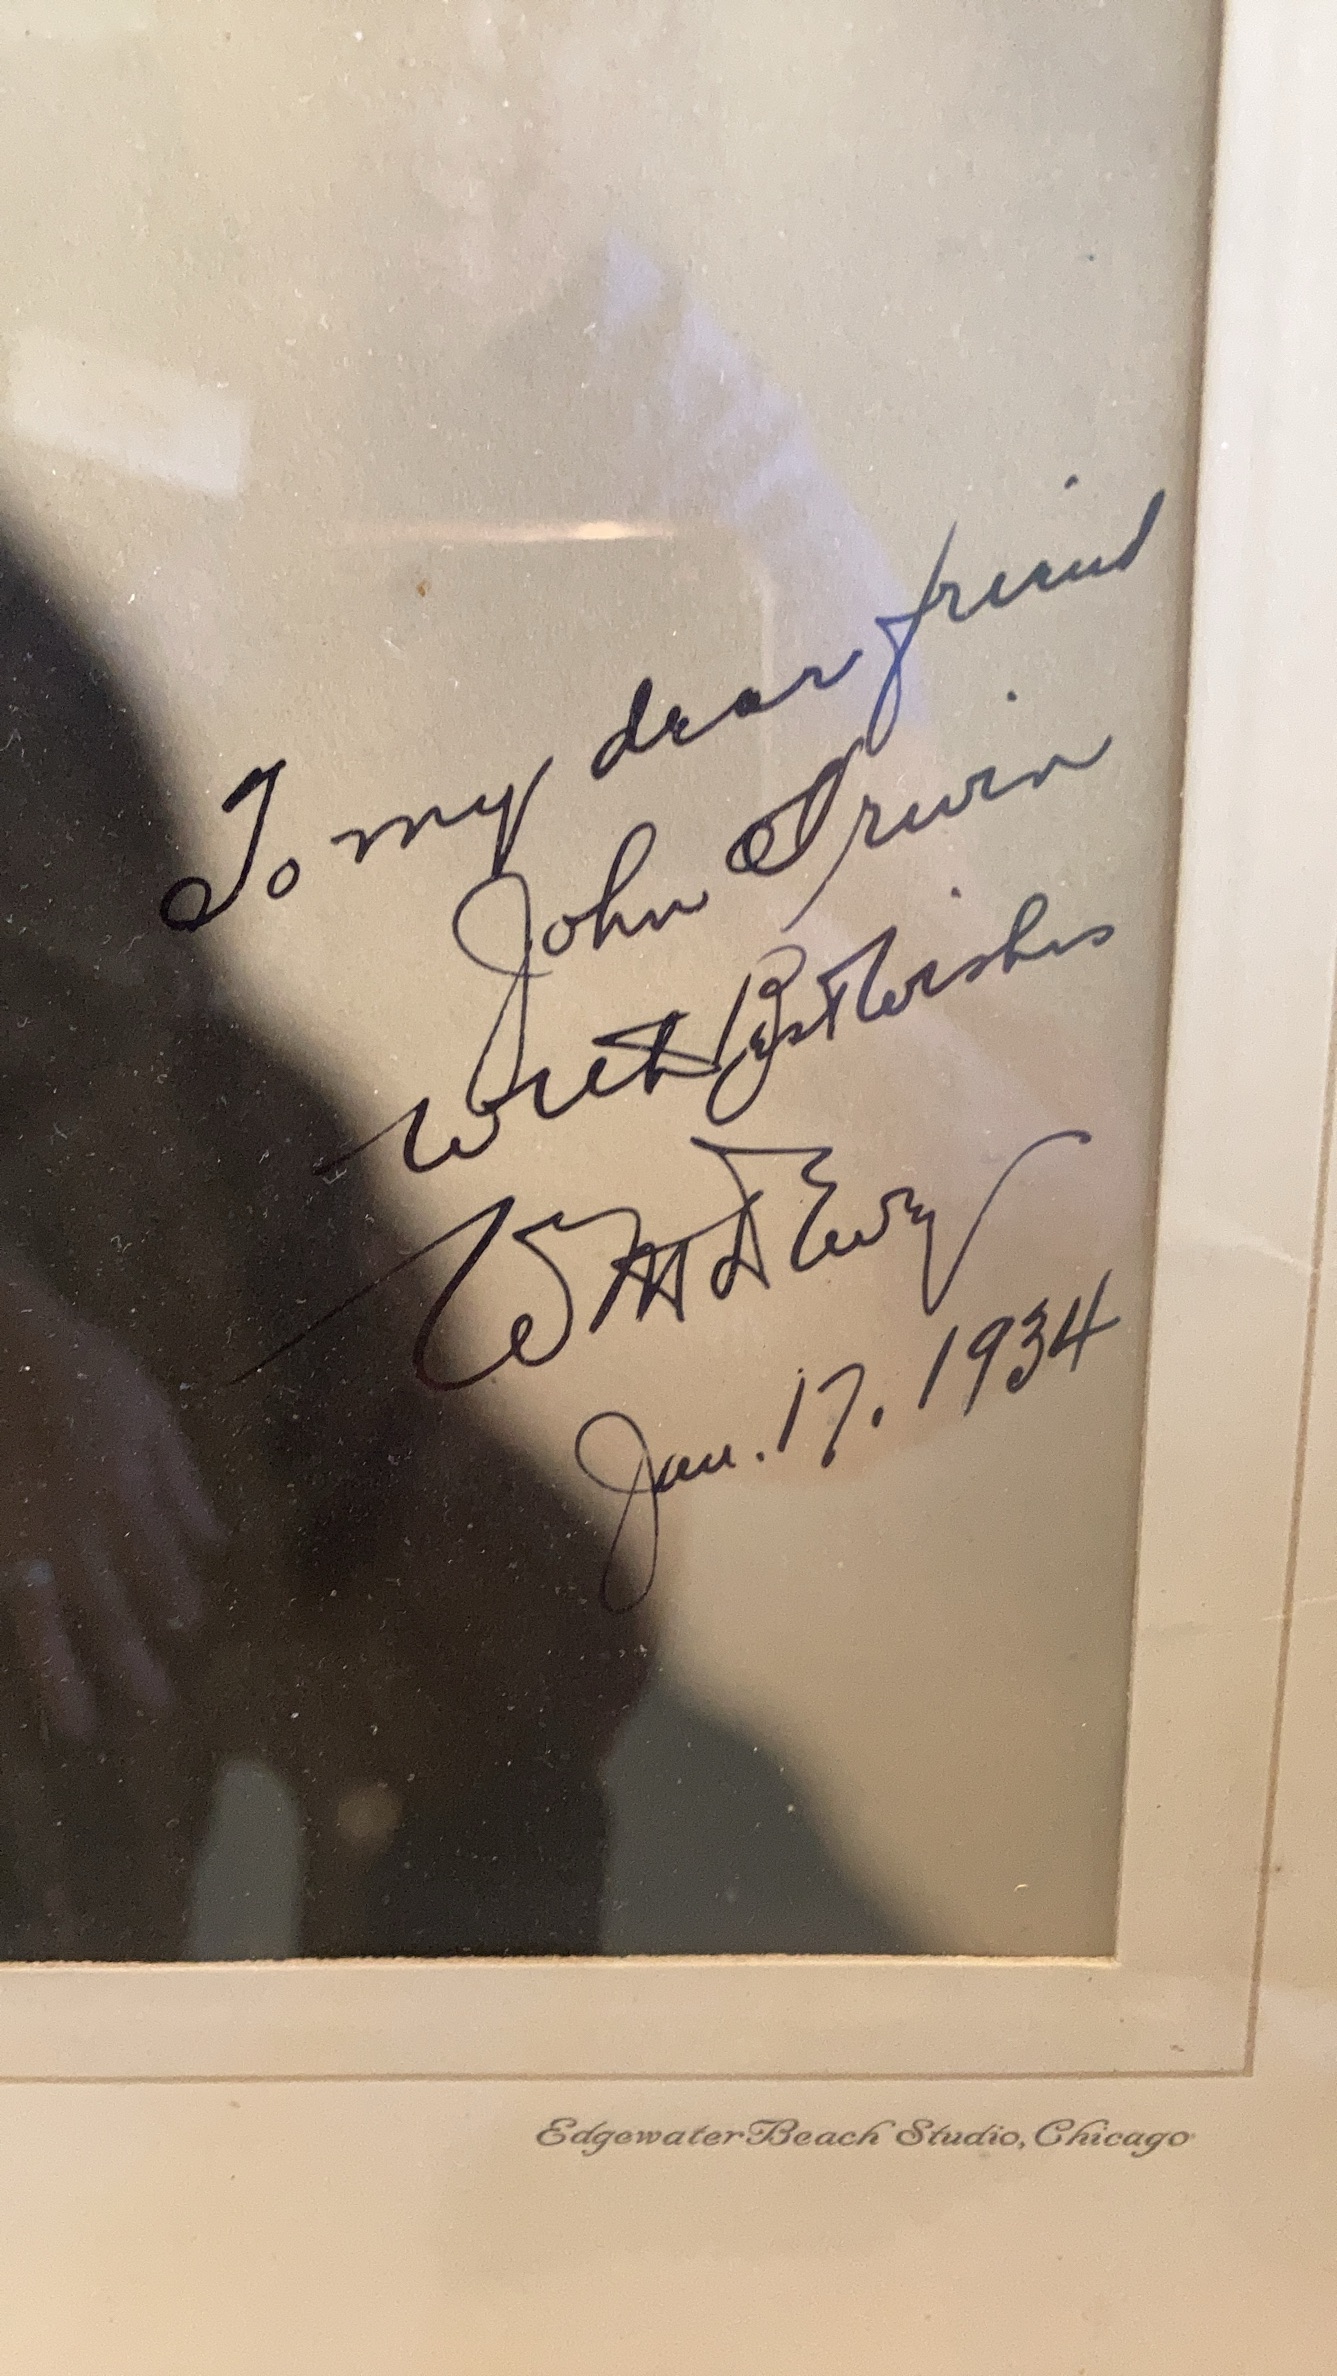 To my dear friend
John Irwin
With Best Wishes
Wm
Jan. 17. 1934
Edgewater Beach Studio, Chicago